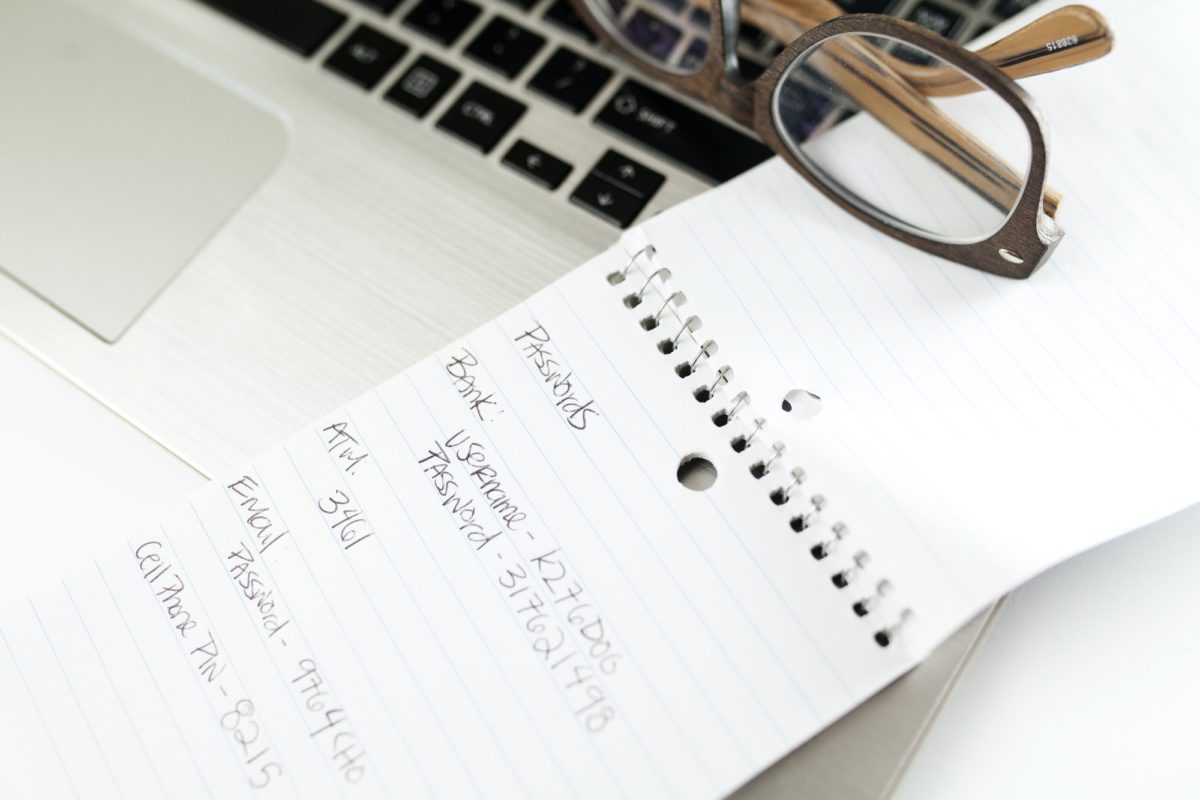 CTRL
SHIFT
628815
Passwords
Bank:
Username - K276DOG
Password - 317621498
ATM. 3461
Email:
Password - 9764CHO
Cell Phone PIN - 8215